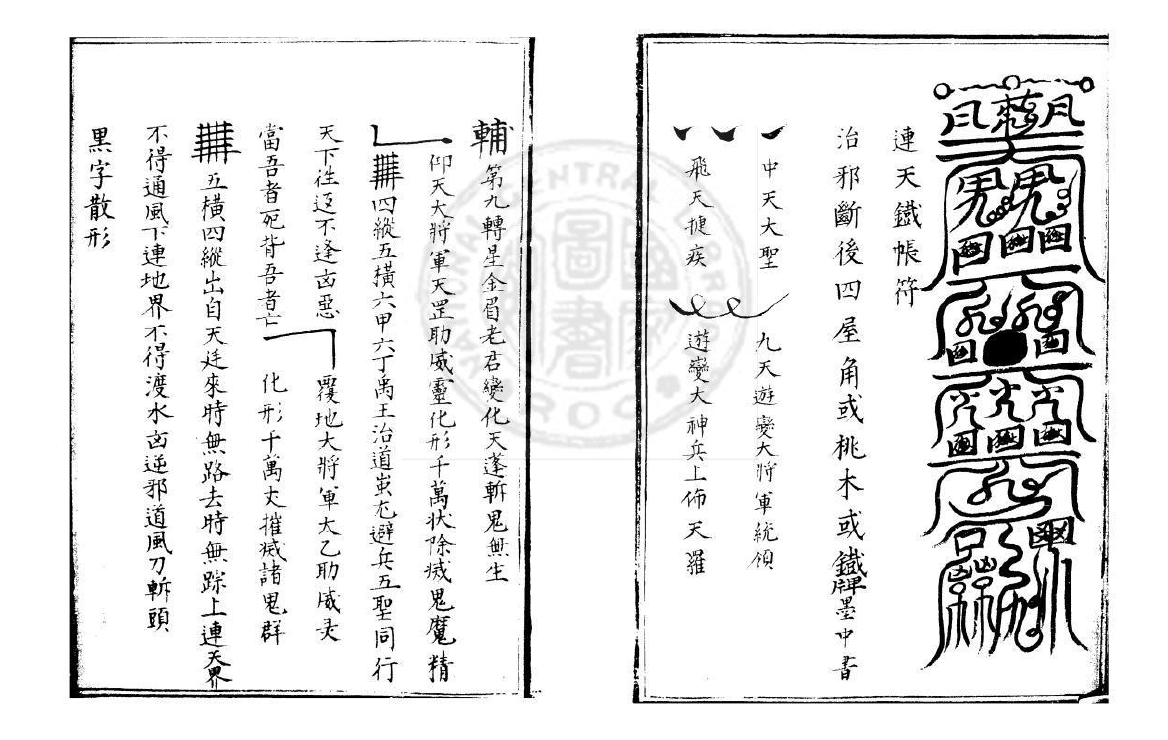 連天鐵帳符
治邪斷後四屋角或桃木或鐵牌墨中書
中天大聖 九天遊變大將軍統領
飛天捷疾 遊變大神兵上佈天羅
輔 第九轉星金眉老君變化天蓬斬鬼無生
仰天大將軍天罡助威靈化形千萬狀除滅鬼魔精
四縱五橫六甲六丁禹王治道蚩尤避兵五聖同行
天下往返不逢凶惡 覆地大將軍太乙助威灵
當吾者死背吾者亡 化形千萬丈摧滅諸鬼群
五橫四縱出自天廷來時無路去時無踪上連天界
不得通風下連地界不得渡水凶逆邪道風刀斬頭
黑字散形
NATIONAL CENTRAL LIBRARY
R O C